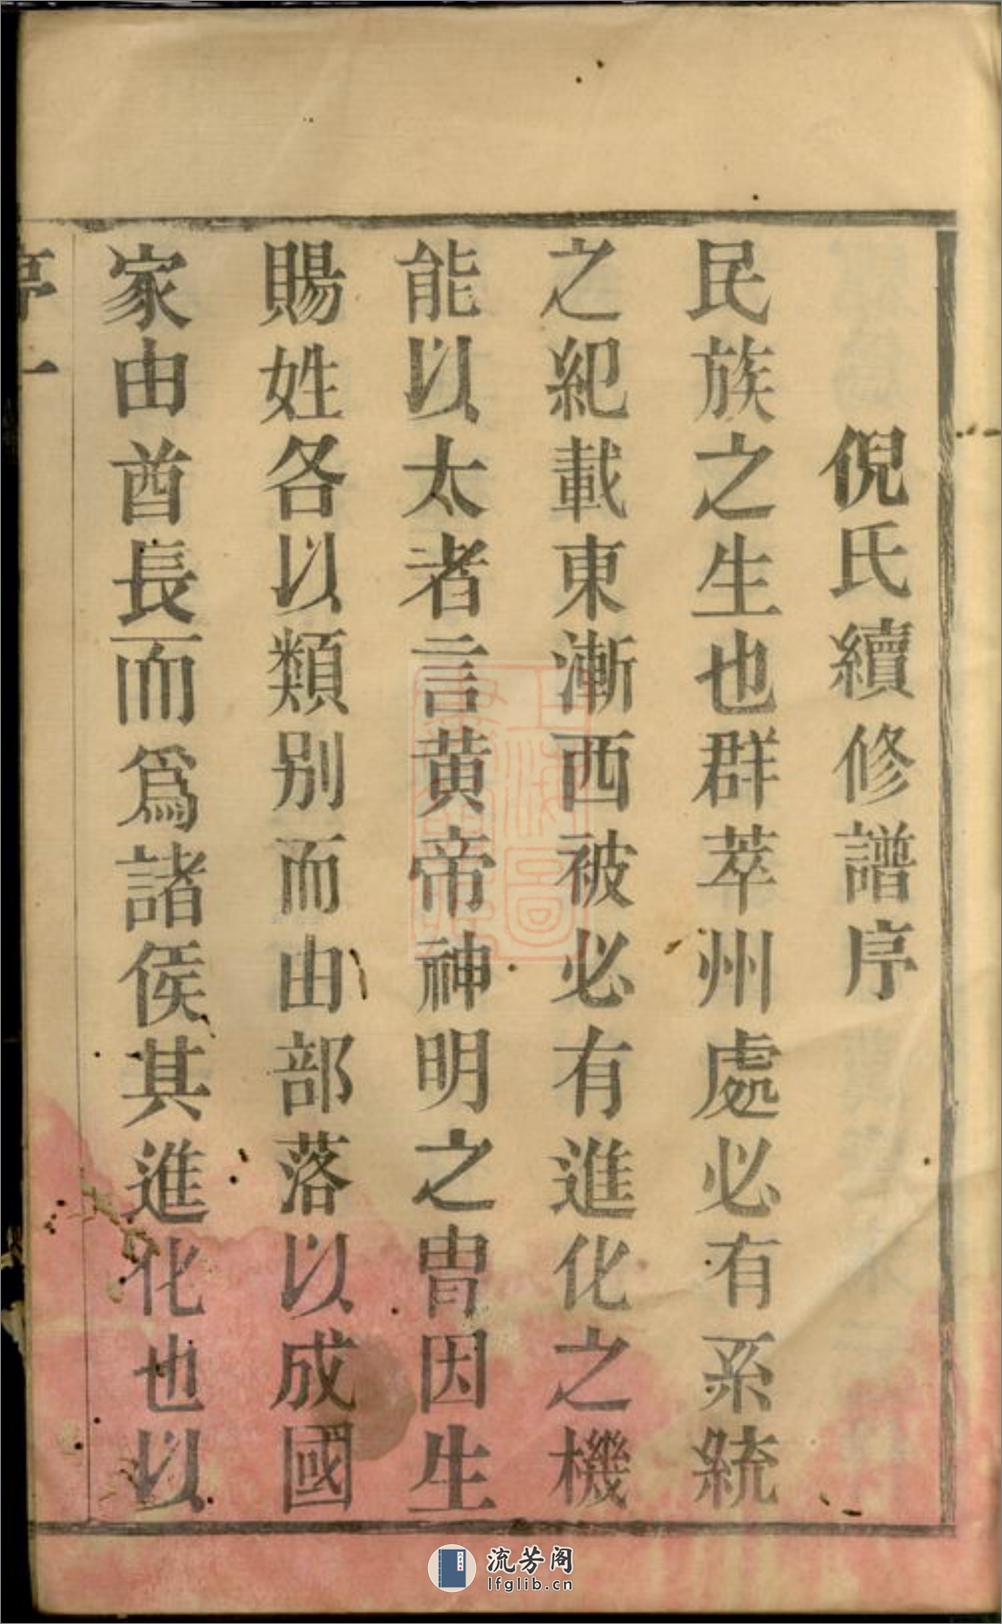 倪氏續修譜序
民族之生也群萃州處必有系統
之紀載東漸西被必有進化之機
能以太者言黄帝神明之胄因生
賜姓各以類别而由部落以成國
家由酋長而爲諸侯其進化也以
序一
流芳阁
lfglib.cn